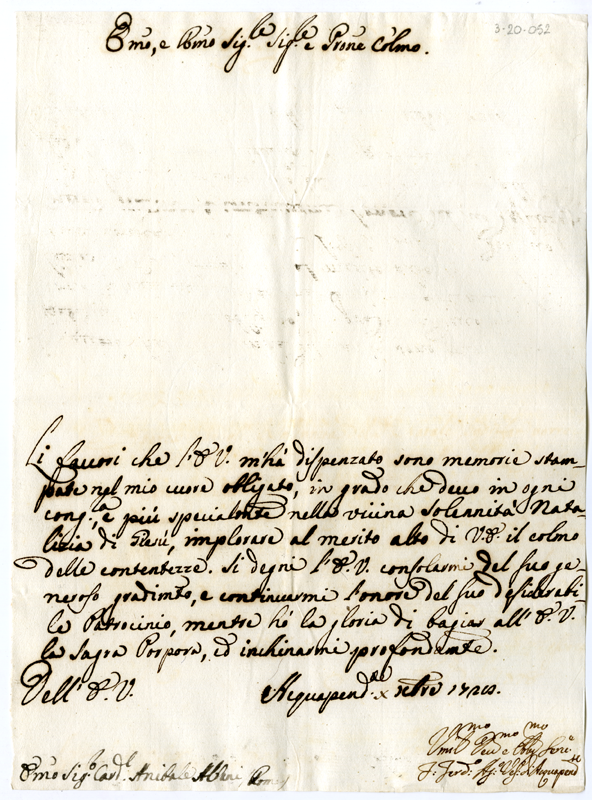 3-20-052
Emo, e Rmo Sig.re Sig.re e Prone Colmo.
Li favori che l'E.V. m'há dispenzato sono memorie stam-
pate nel mio cuore obligato, in grado che devo in ogni
cong.a, e piú specialmte nella vicina solennità Nata-
lizia di Giesú, implorare al merito alto di V.E. il colmo
delle contentezze. Si degni l'E.V. consolarmi del suo ge-
neroso gradimto, e continuarmi l'onore del suo desiderabi-
le Patrocinio, mentre hó la gloria di bagiar all'E.V.
la Sagra Porpora, ed inchinarmi profondamte.
Dell'E.V.
Acquapend.te x mbre
Umil.mo Dev.mo e Obb.mo Serv.e
Emo Sig.r Card.l Anibale Albani Roma